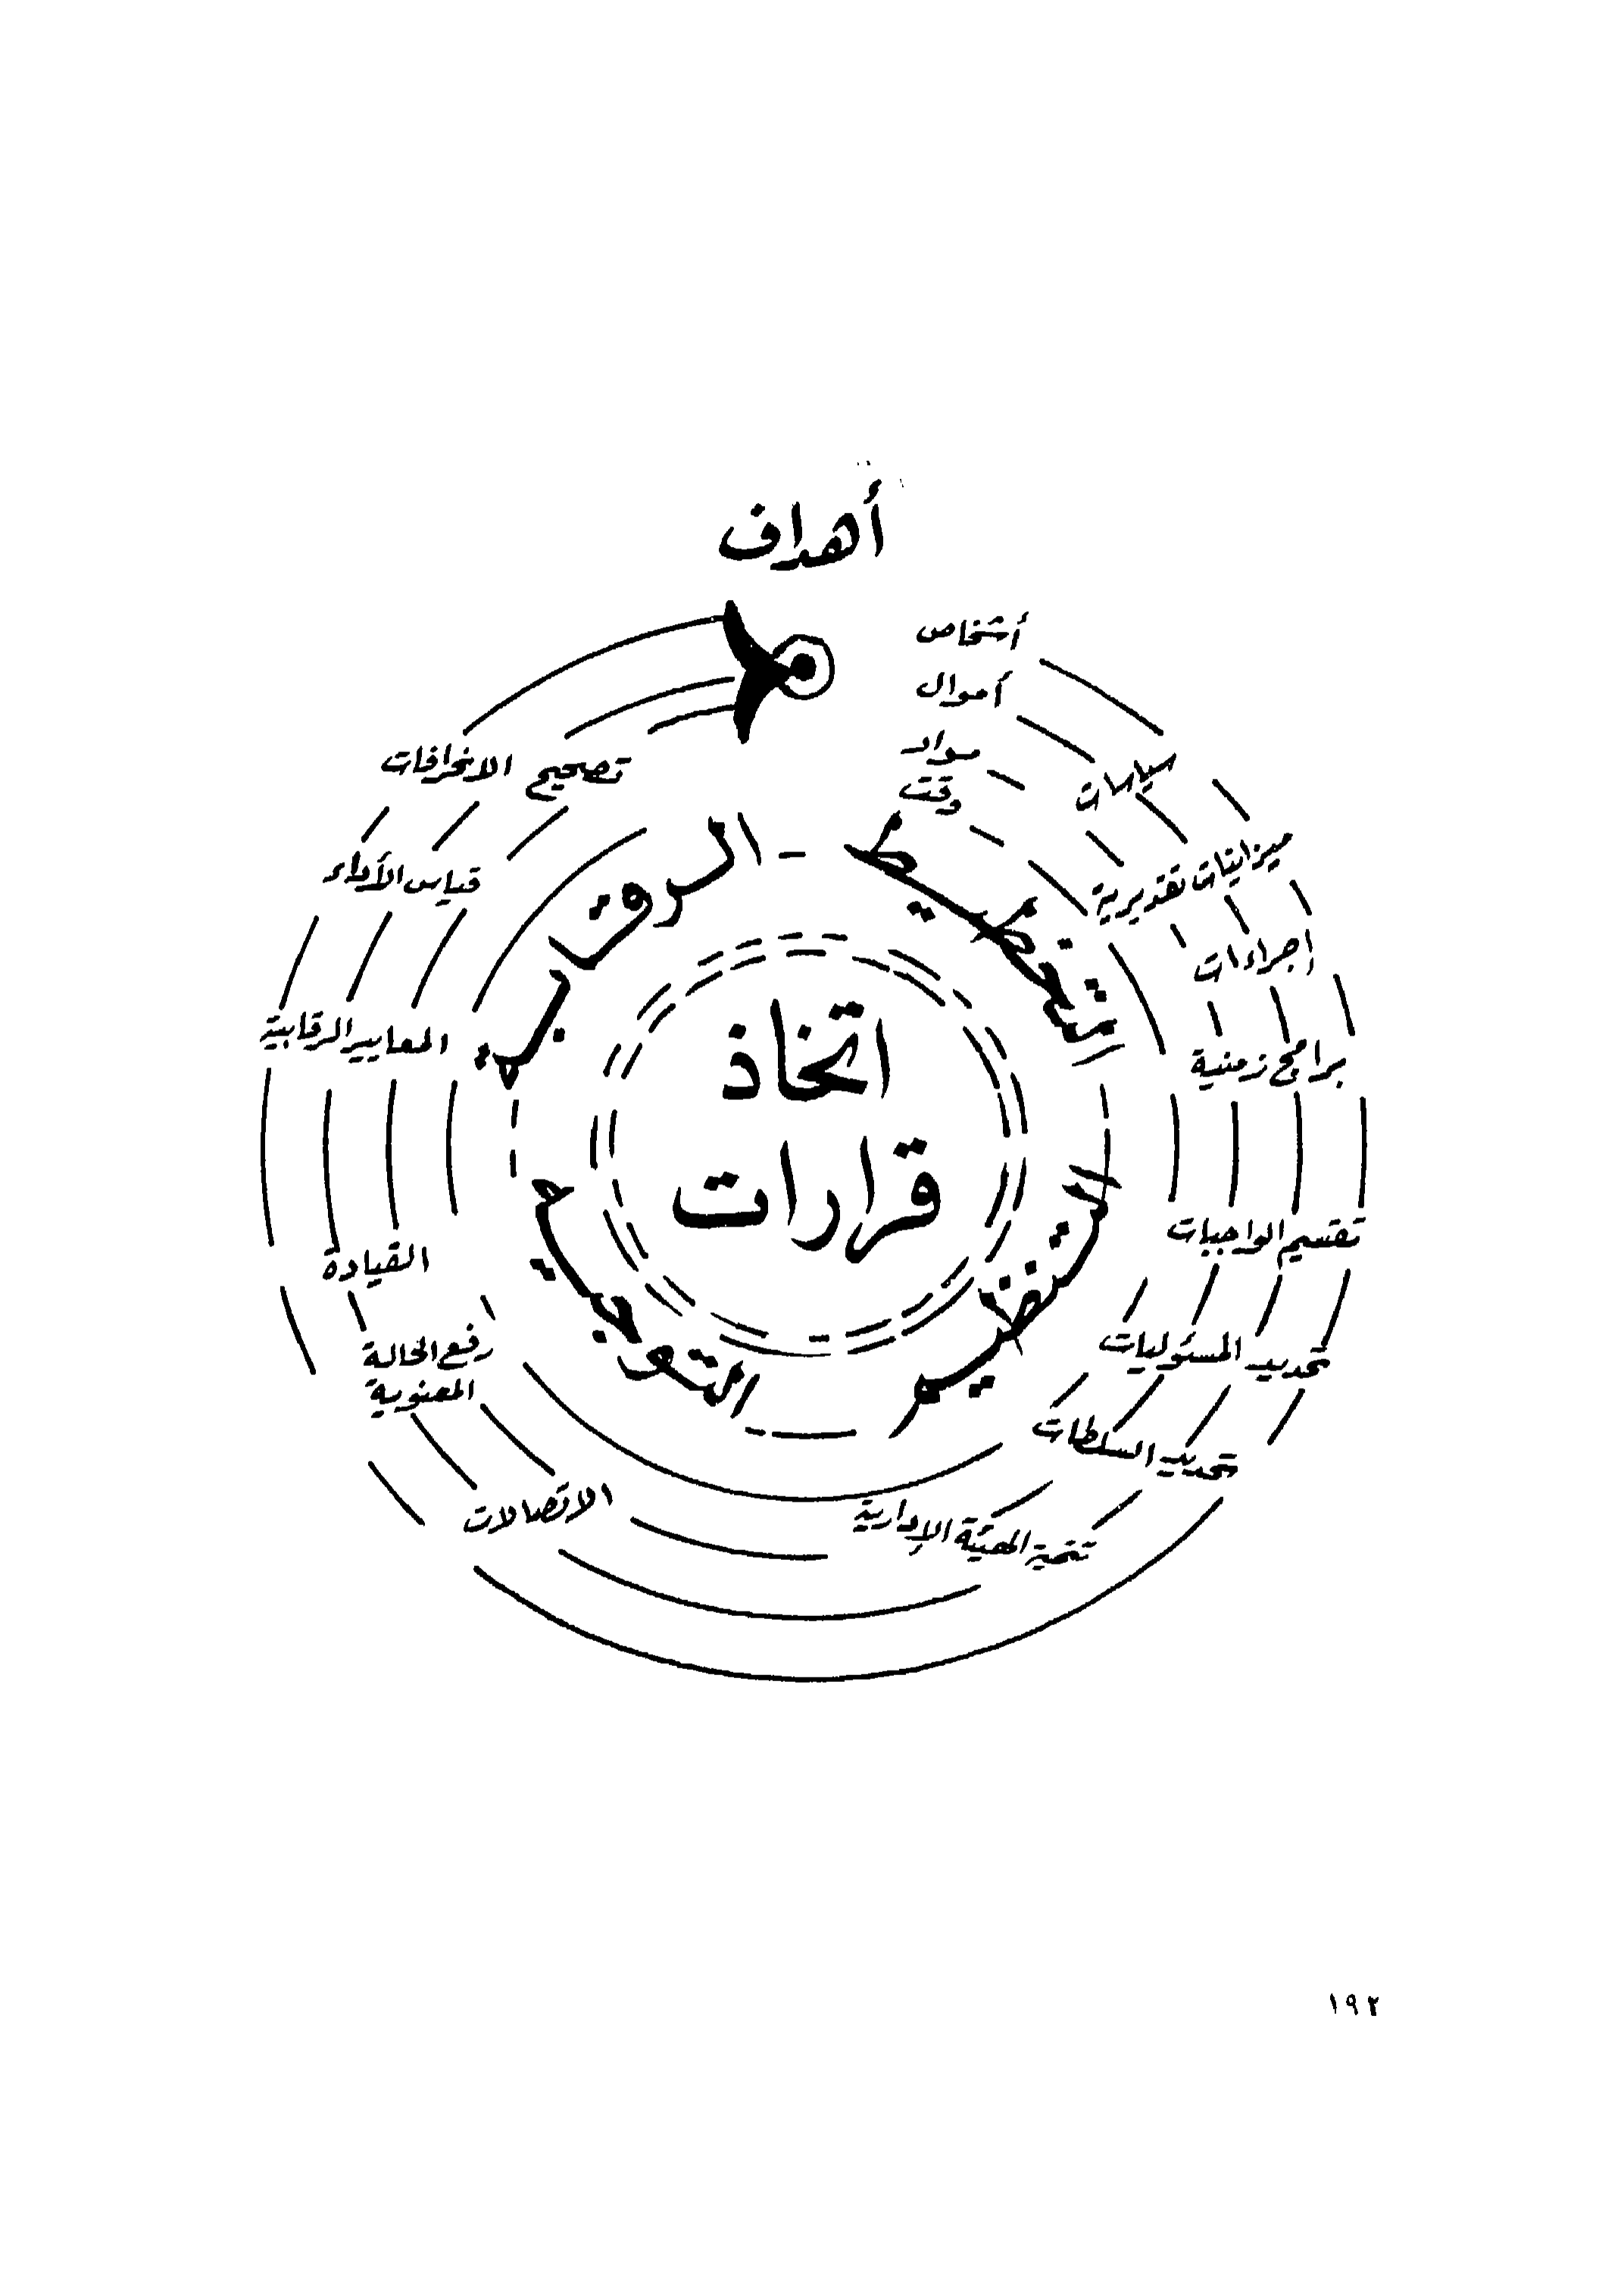 أهداف
أشخاص
أموال
مواد
وقت
سياسات
ميزانيات تقديرية
إجراءات
برامج زمنية
تقسيم الواجبات
تحديد المسئوليات
تحديد السلطات
تنمية الهيئة الإدارية
الاتصالات
رفع الحالة
المعنوية
القيادة
المعايير الرقابية
قياس الأداء
تصحيح الانحرافات
التخطيط
التنظيم
التوجيه
الرقابة
اتخاذ
قرارات
١٩٢